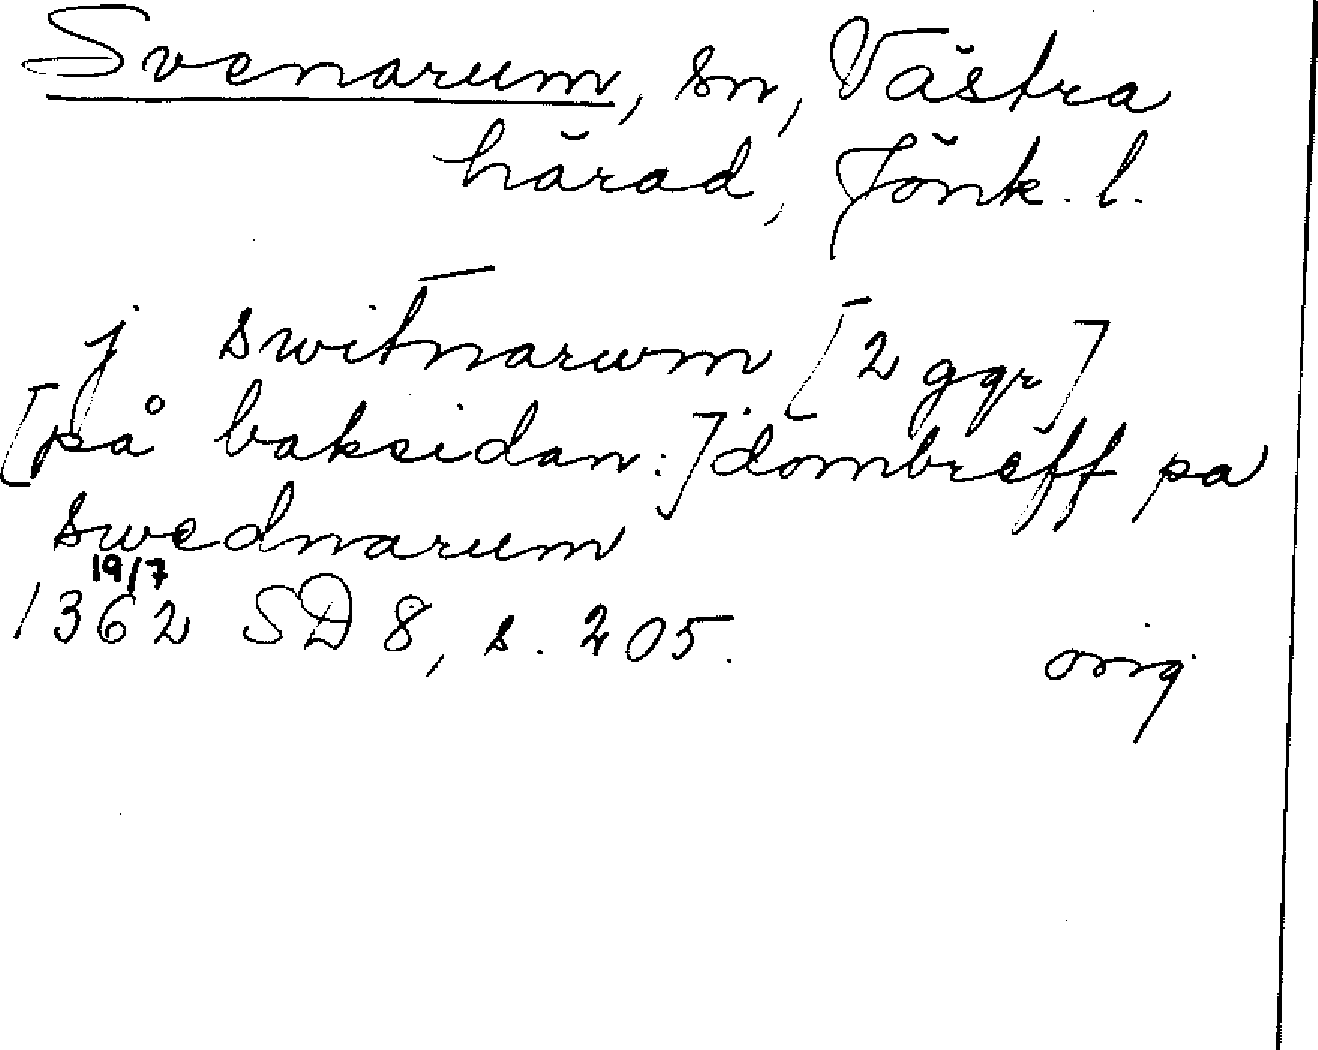 Svenarum, sn, Västra
härad, Jönk. l.
j switnarwm [2 ggr]
[på baksidan:] dömbreff pa
swednarum
19/7
1362 SD 8, s. 205.
orig